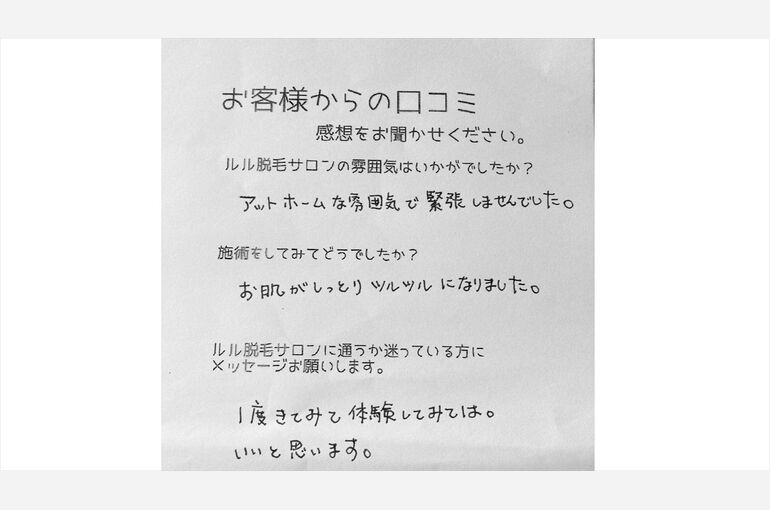 お客様からの口コミ
感想をお聞かせください。
ルル脱毛サロンの雰囲気はいかがでしたか？
アットホームな雰囲気で緊張しませんでした。
施術をしてみてどうでしたか？
お肌がしっとりツルツルになりました。
ルル脱毛サロンに通うか迷っている方に
メッセージお願いします。
1度きてみて体験してみては。
いいと思います。